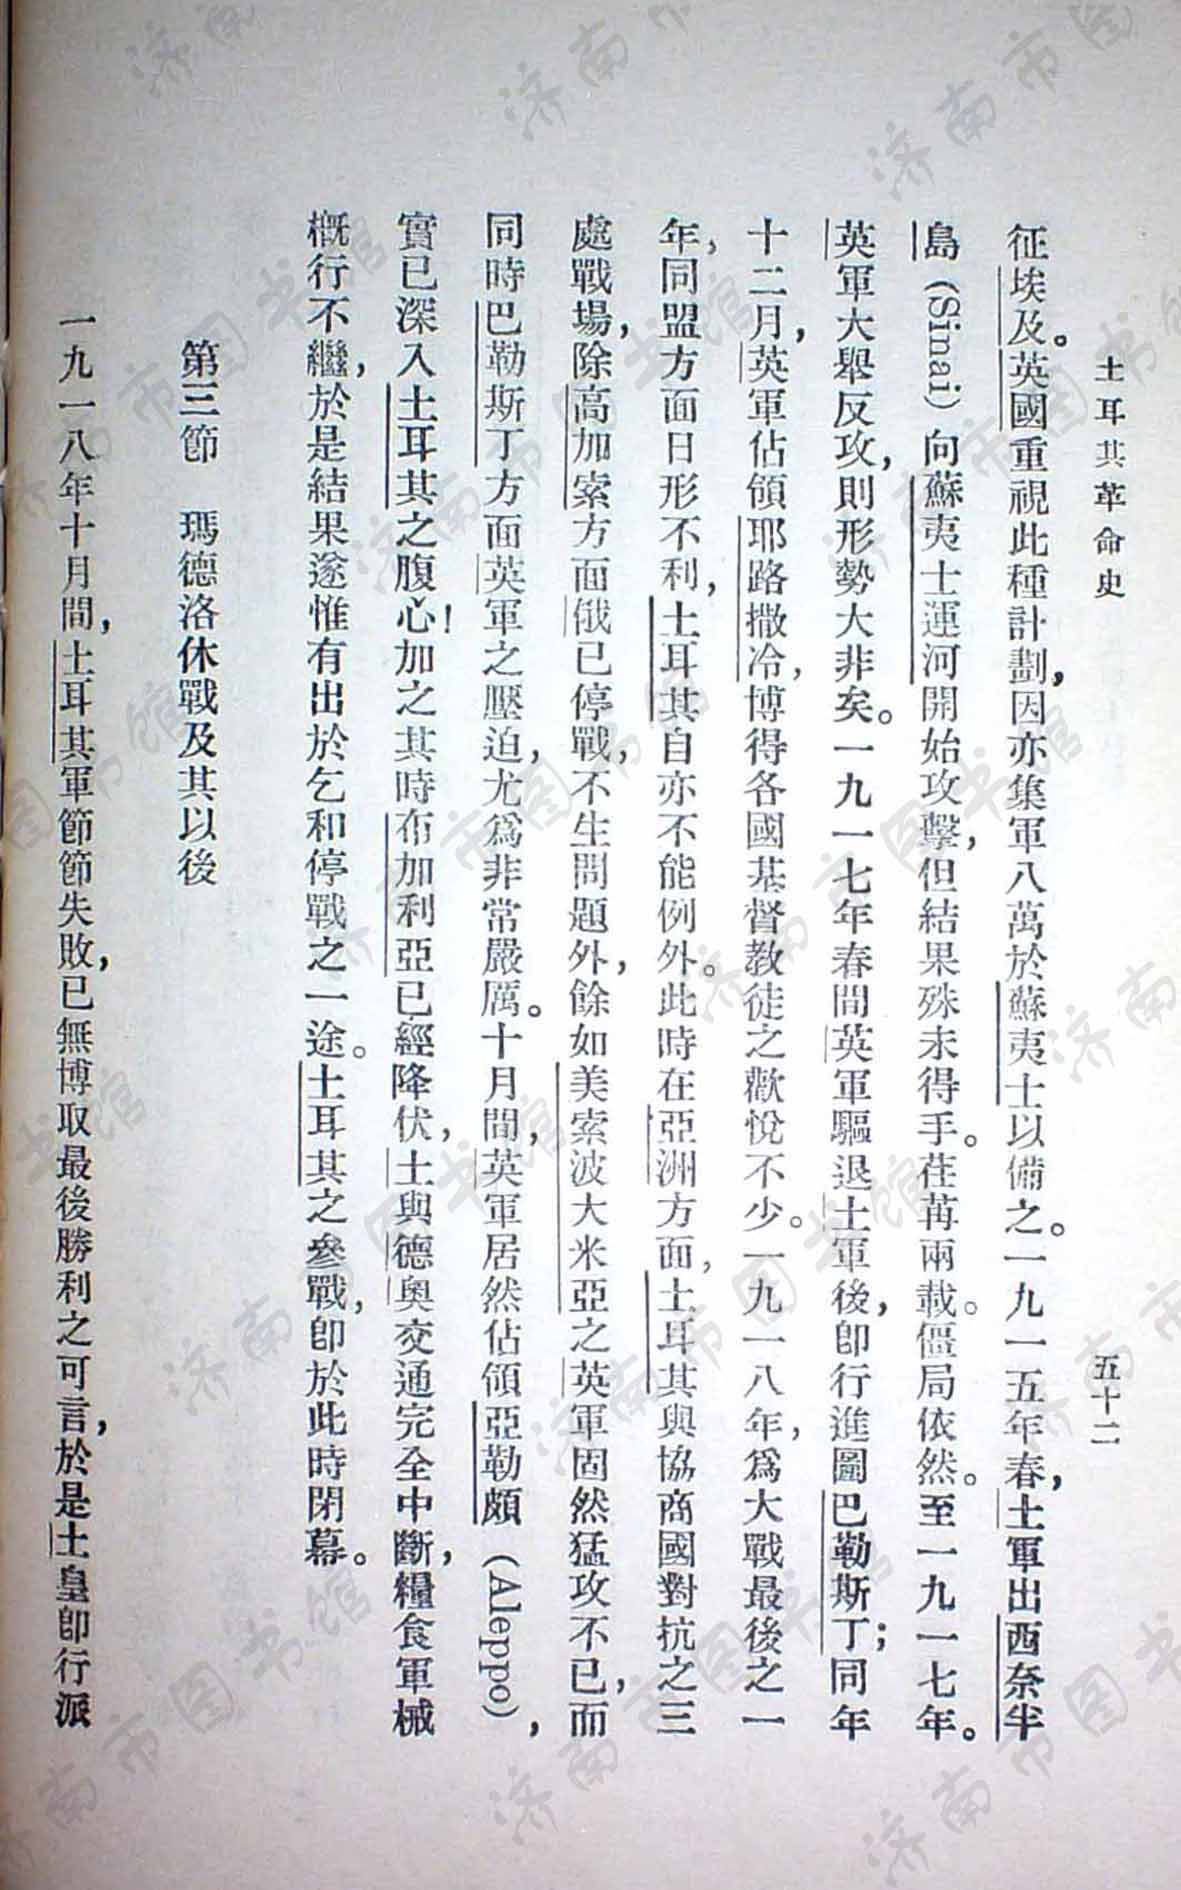 土耳其革命史
五十二
征埃及。英國重視此種計劃,因亦集軍八萬於蘇夷士以備之。一九一五年春,土軍出西奈半
島(Sinai)向蘇夷士運河開始攻擊,但結果殊未得手。荏苒兩載。僵局依然。至一九一七年。
英軍大舉反攻,則形勢大非矣。一九一七年春間英軍驅退土軍後,卽行進圖巴勒斯丁;同年
十二月,英軍佔領耶路撒冷,博得各國基督教徒之歡悅不少。一九一八年,爲大戰最後之一
年,同盟方面日形不利,土耳其自亦不能例外。此時在亞洲方面,土耳其與協商國對抗之三
處戰場,除高加索方面俄已停戰,不生問題外,餘如美索波大米亞之英軍固然猛攻不已,而
同時巴勒斯丁方面英軍之壓迫,尤爲非常嚴厲。十月間,英軍居然佔領亞勒頗(Aleppo),
實已深入土耳其之腹心!加之其時布加利亞已經降伏,土與德奧交通完全中斷,糧食軍械
概行不繼,於是結果遂惟有出於乞和停戰之一途。土耳其之參戰,卽於此時閉幕。
第三節 瑪德洛休戰及其以後
一九一八年十月間,土耳其軍節節失敗,已無博取最後勝利之可言,於是土皇卽行派
济南市图书馆